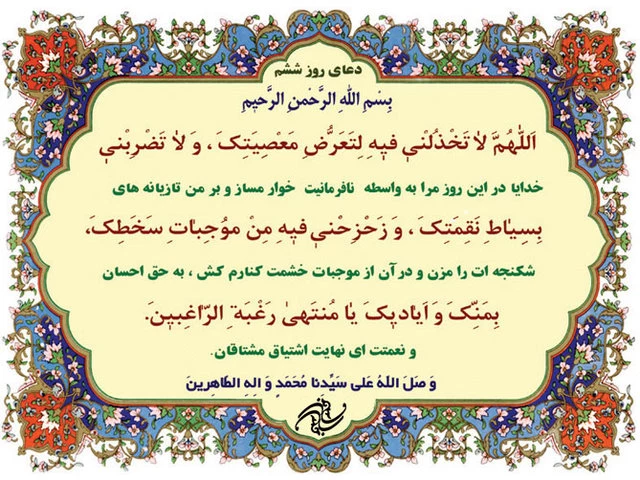 دعای روز ششم
بِسْمِ اللهِ الرَّحْمنِ الرَّحیمِ
اَللّهُمَّ لاٰ تَخْذُلْنی فیهِ لِتَعَرُّضِ مَعْصِیَتِکَ ، وَ لاٰ تَضْرِبْنی
خدایا در این روز مرا به واسطه نافرمانیت خوار مساز و بر من تازیانه های
بِسِیٰاطِ نَقِمَتِکَ ، وَ زَحْزِحْنی فیهِ مِنْ مُوجِبٰاتِ سَخَطِکَ،
شکنجه ات را مزن و در آن از موجبات خشمت کنارم کش ، به حق احسان
بِمَنِّکَ وَ اَیٰادیکَ یٰا مُنتَهیٰ رَغْبَةِ الرّٰاغِبینَ.
و نعمتت ای نهایت اشتیاق مشتاقان.
وَ صَلَ اللهُ عَلی سَیِّدنا مُحَمَدٍ وَ الِهِ الطّاهِرینَ